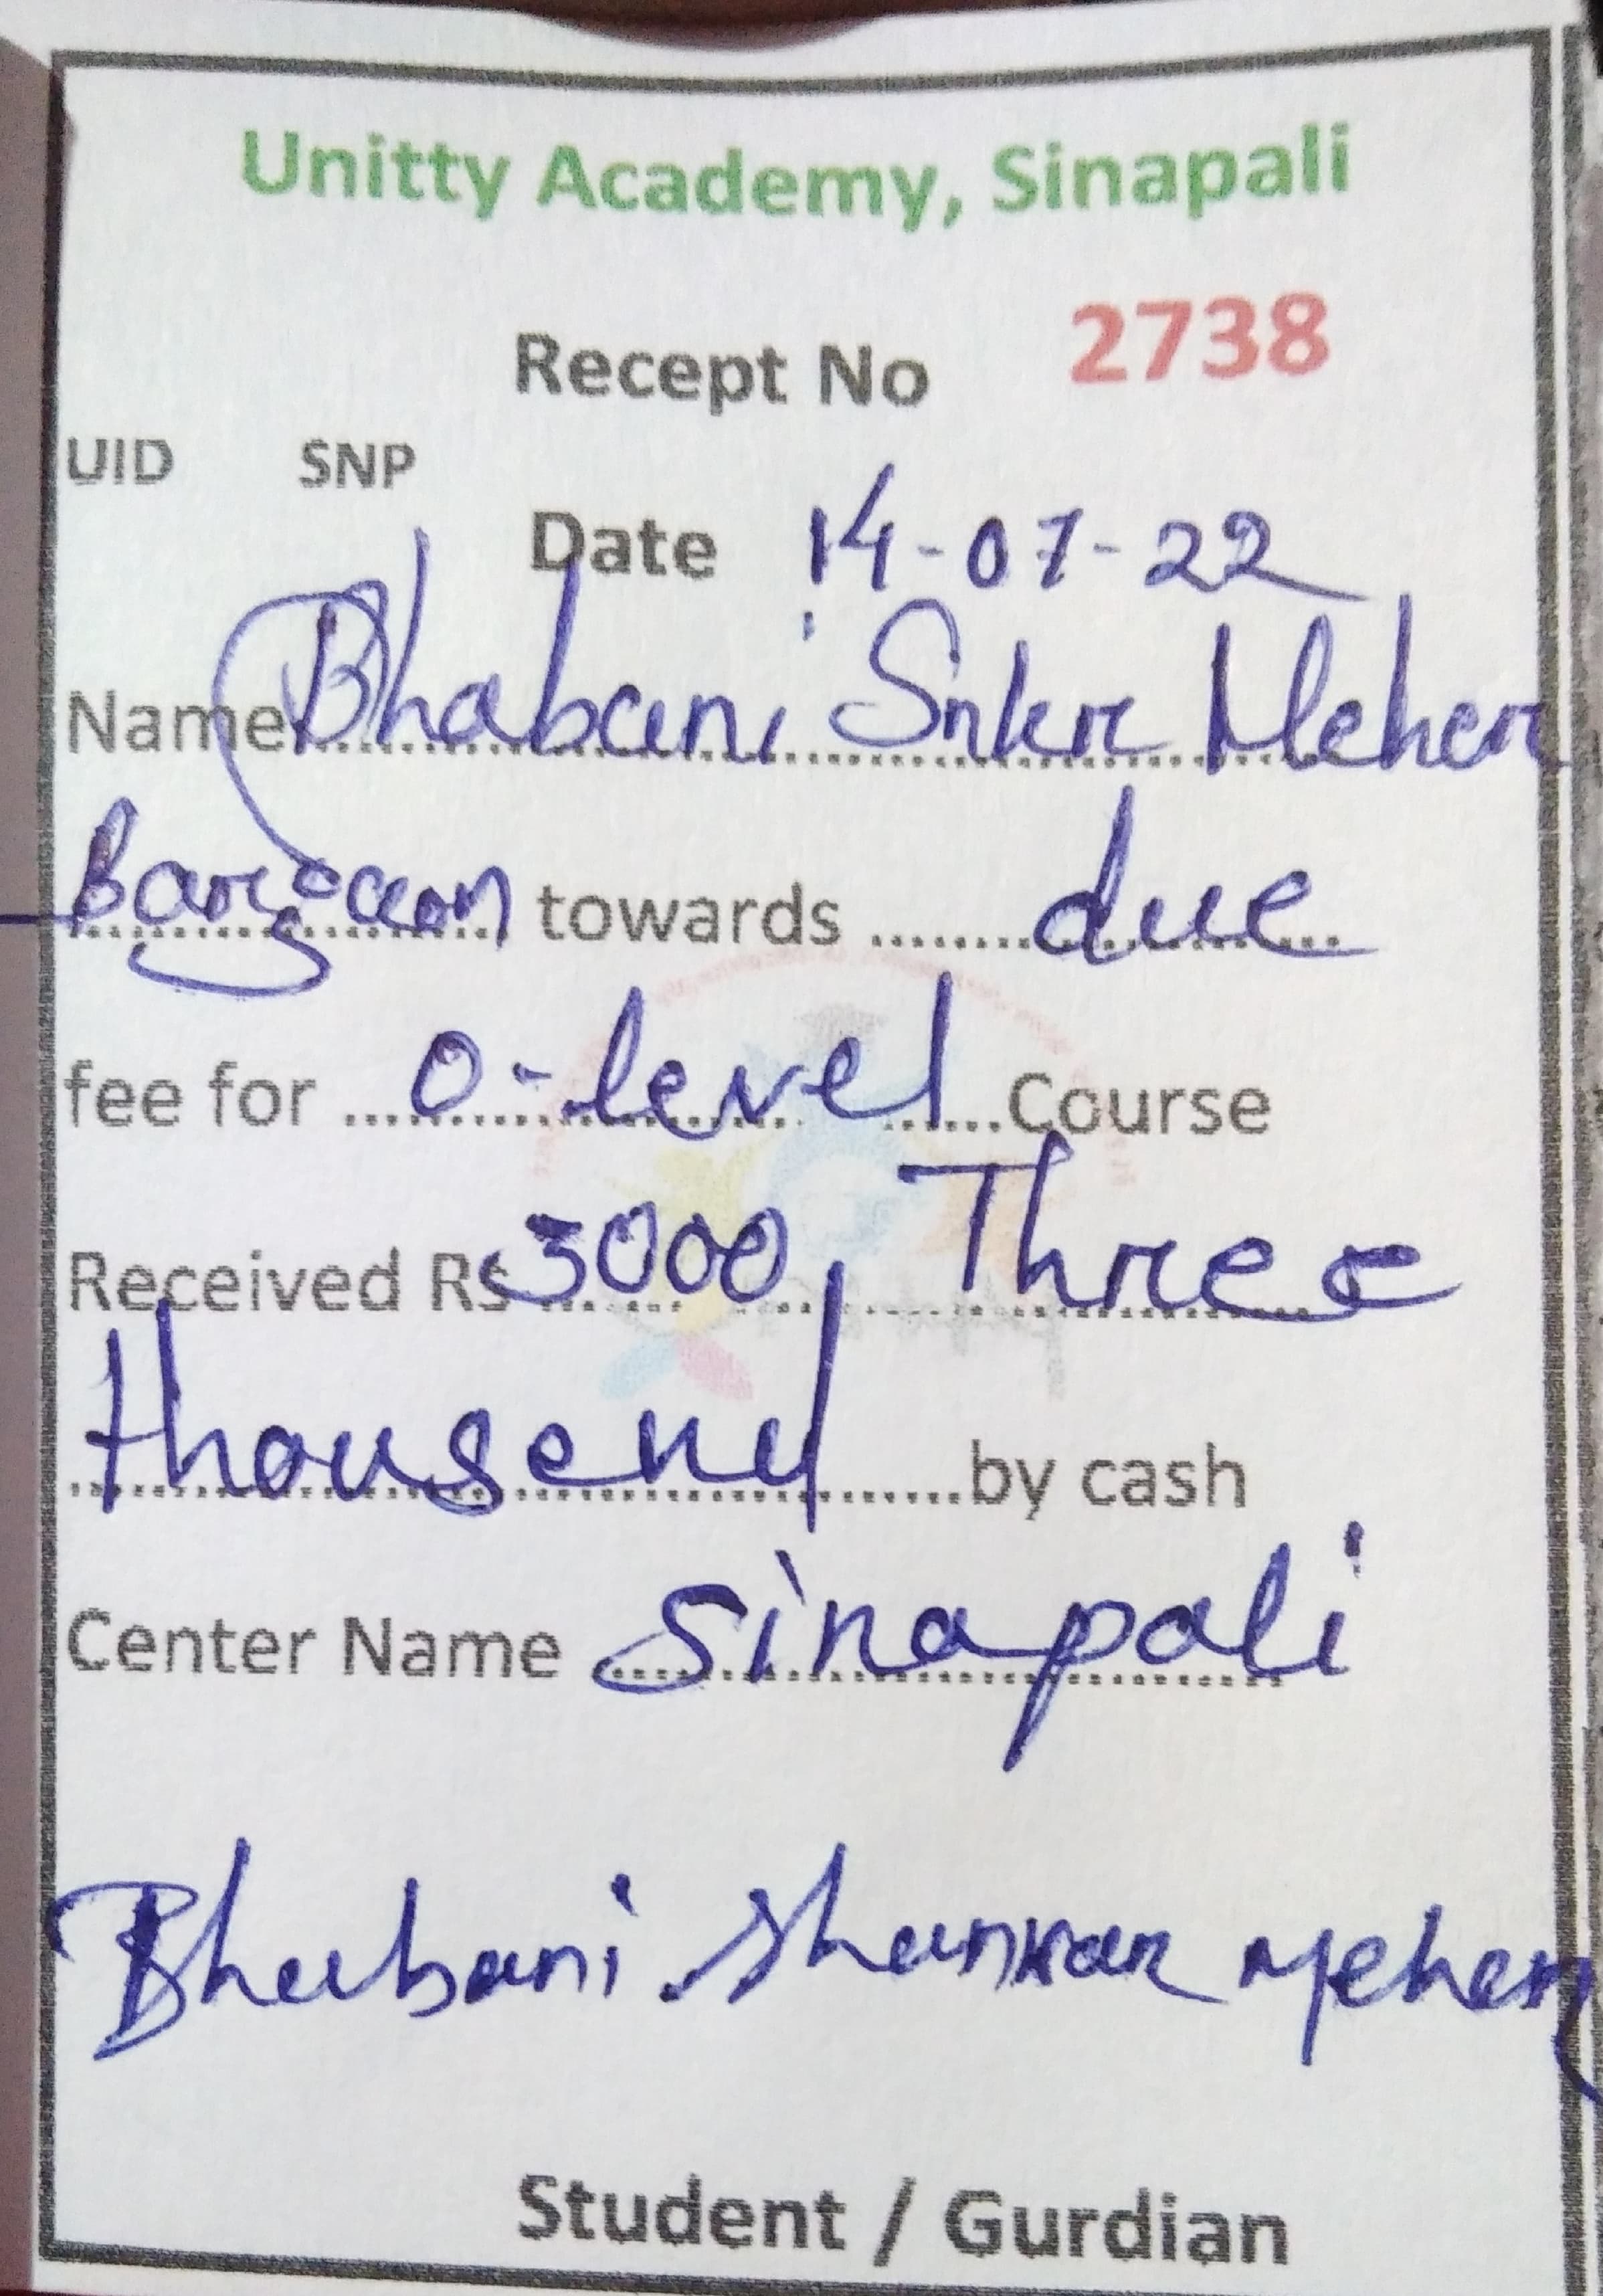 Unitty Academy, Sinapali
Recept No 2738
UID SNP
Date 14-07-22
Name Bhabani Snkr Meher
Bargaon towards ........ due
fee for ... O-level ... Course
Received Rs 3000, Three
thousend ...... by cash
Center Name Sinapali
Bhabani Shankar Meher
Student / Gurdian